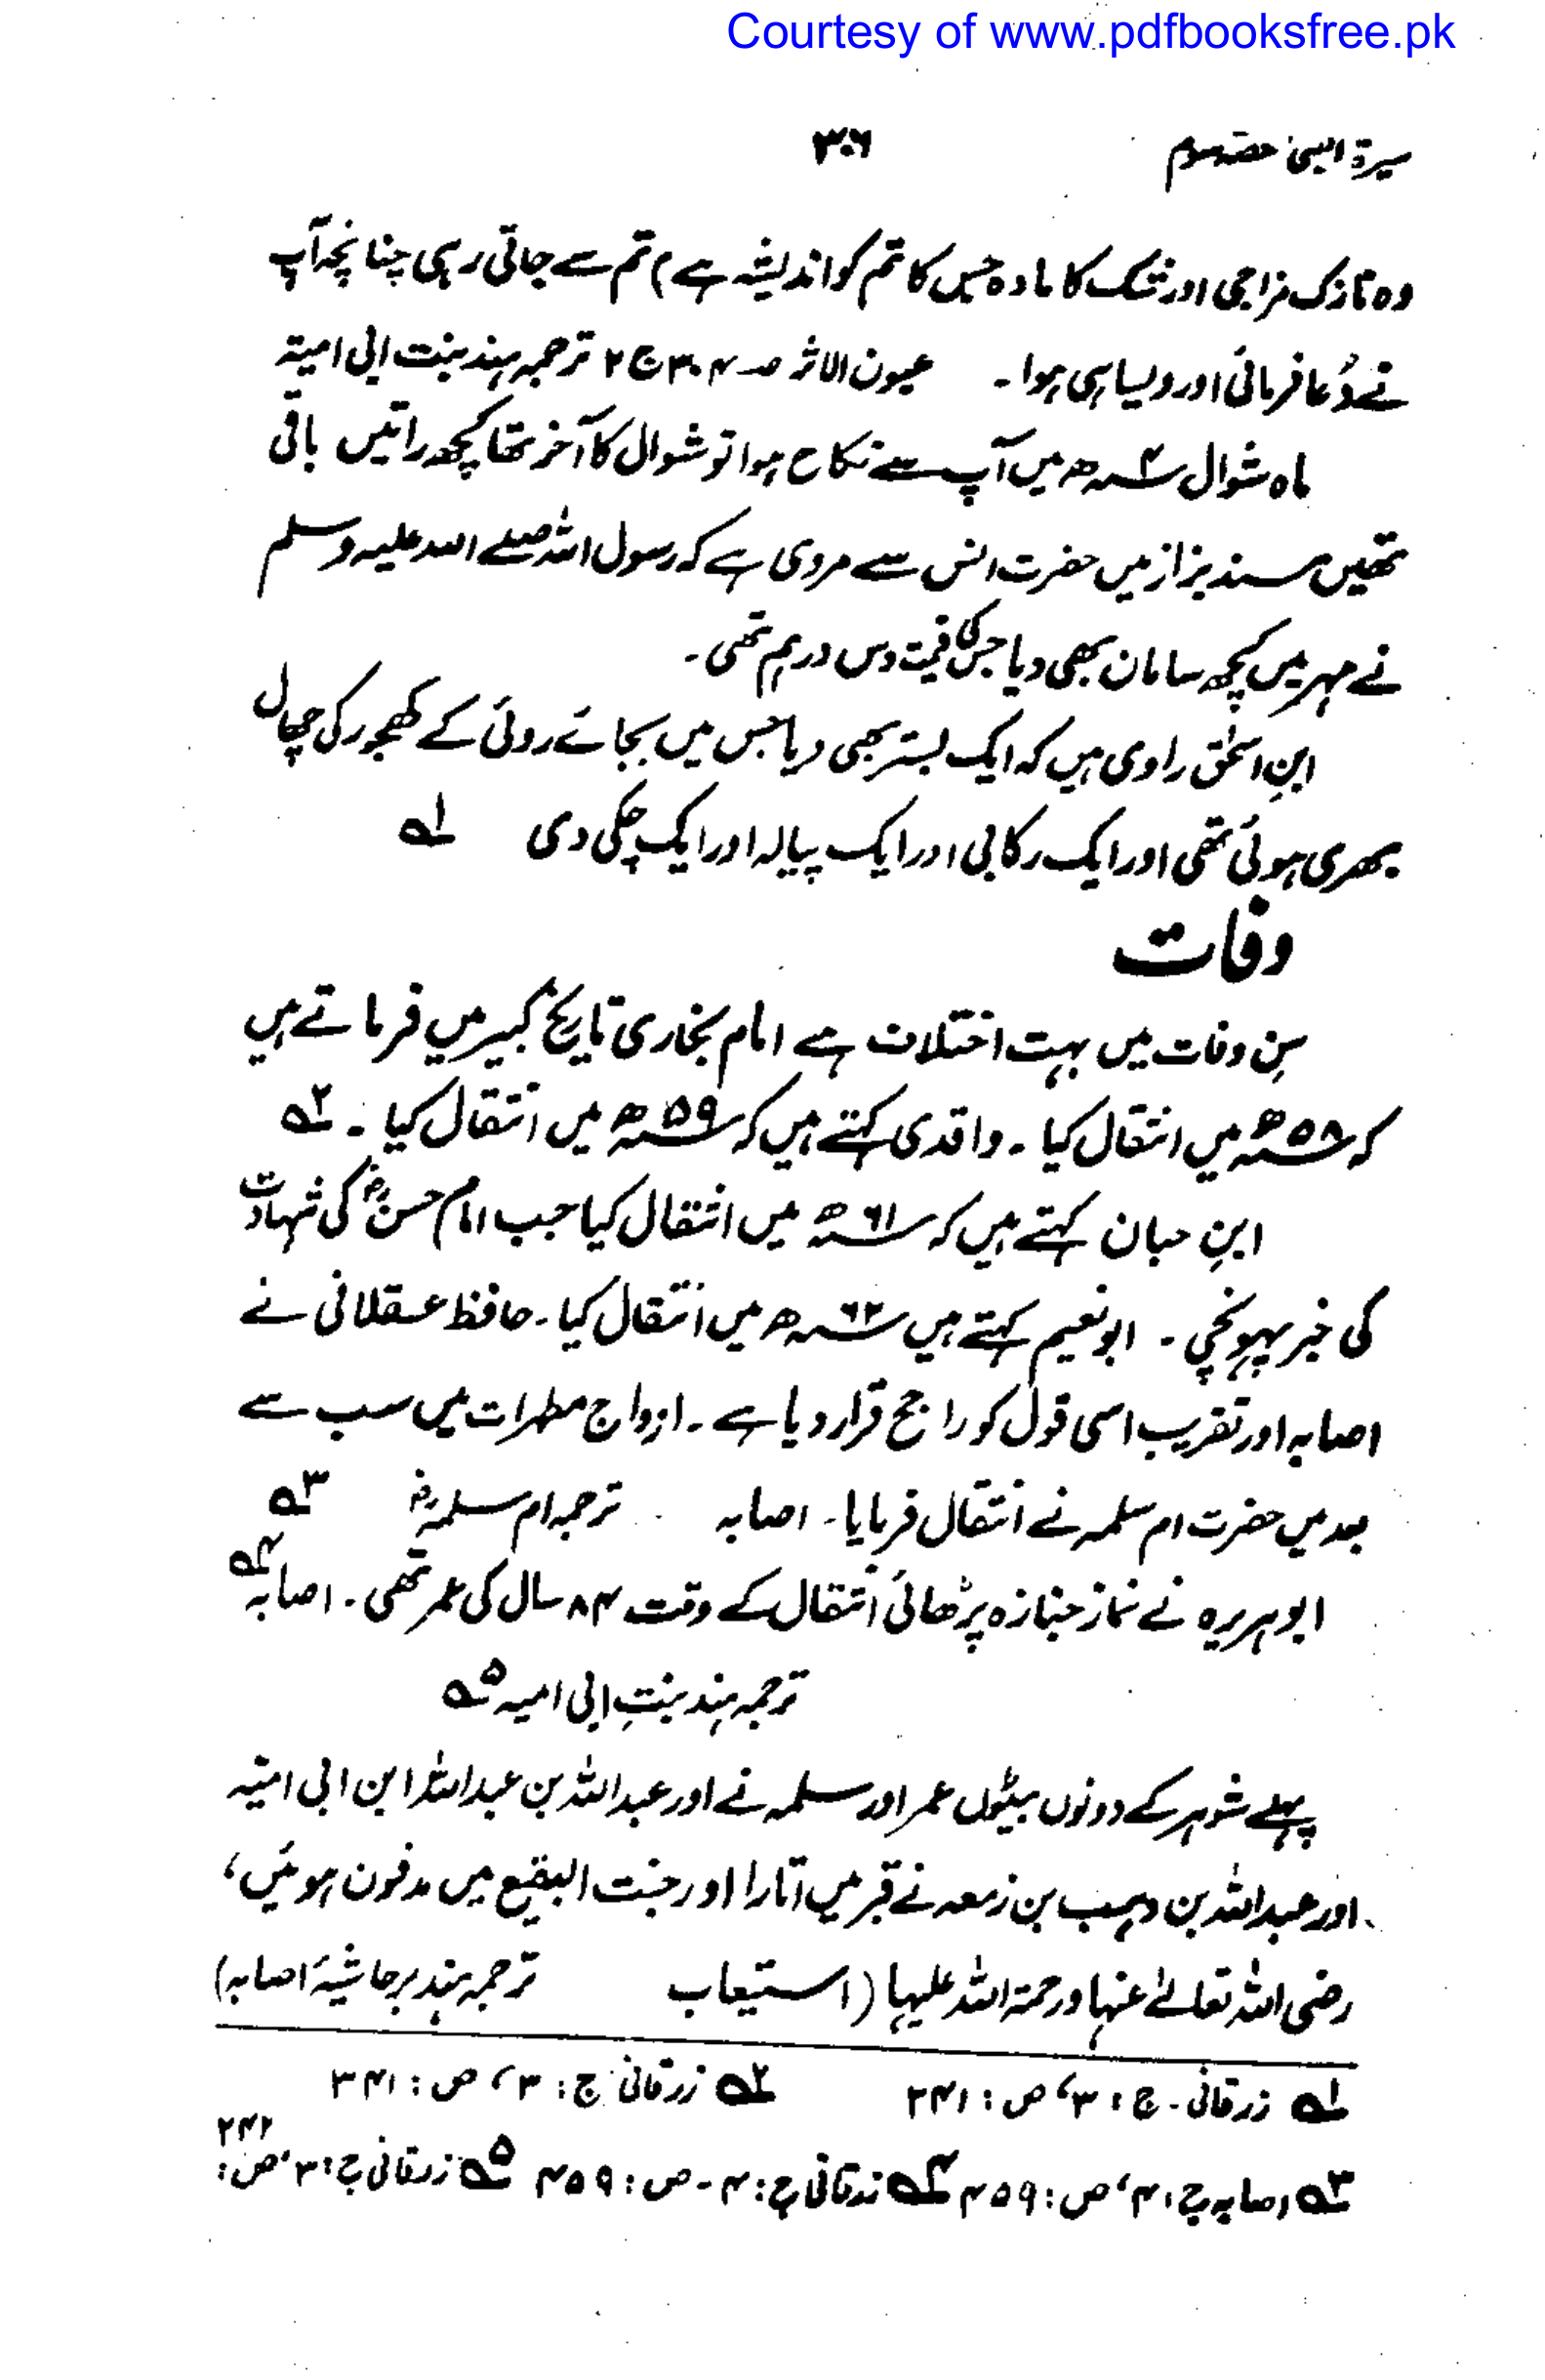 Courtesy of www.pdfbooksfree.pk
سیرۃ النبی حصہ سوم ۳۰۶
وہ نازک مزاجی اور شک کا مادہ جس کا تم کو اندیشہ ہے) تم سے جاتی رہی چنانچہ آپ
نے دُعا فرمائی اور ویسا ہی ہوا۔ عیون الاثر صـ ۳۰۴ ج ۲ ترجمہ ہند بنت ابی امیۃ
ماہ شوال ۴ھ میں آپ سے نکاح ہوا تو شوال کا آخر تھا کچھ راتیں باقی
تھیں مسند بزاز میں حضرت انس سے مروی ہے کہ رسول اللہ صلے اللہ علیہ وسلم
نے مہر میں کچھ سامان بھی دیا جس کی قیمت دس درہم تھی۔
ابنِ اسحٰق راوی ہیں کہ ایک بستر بھی دیا جس میں بجائے روئی کے کھجور کی چھال
بھری ہوئی تھی اور ایک رکابی اور ایک پیالہ اور ایک چکی دی ۱ے
وفات
سِن وفات میں بہت اختلاف ہے امام بخاری تاریخ کبیر میں فرماتے ہیں
کہ ۵۸ھ میں انتقال کیا۔ واقدی کہتے ہیں کہ ۵۹ھ میں انتقال کیا۔ ۲ے
ابنِ حبان کہتے ہیں کہ ۶۱ھ میں انتقال کیا جب امام حسنؓ کی شہادت
کی خبر پہونچی۔ ابونعیم کہتے ہیں ۶۲ھ میں انتقال کیا۔ حافظ عسقلانی نے
اصابہ اور تقریب اسی قول کو راجح قرار دیا ہے۔ ازواج مطہرات میں سب سے
بعد میں حضرت ام سلمہ نے انتقال فرمایا۔ اصابہ ترجمہ ام سلمہؓ ۳ے
ابوہریرہ نے نماز جنازہ پڑھائی انتقال کے وقت ۸۴ سال کی عمر تھی۔ اصابہ ۴ے
ترجمہ ہند بنتِ ابی امیہ ۵ے
پہلے شوہر کے دونوں بیٹوں عمر اور سلمہ نے اور عبداللہ بن عبداللہ ابن ابی امیّہ
اور عبداللہ بن وہب بن زمعہ نے قبر میں اتارا اور جنت البقیع میں مدفون ہوئیں،
رضی اللہ تعالےٰ عنہا ورحمۃ اللہ علیہا (استیعاب ترجمہ ہند بر حاشیۂ اصابہ)
۱ے زرقانی۔ ج: ۳، ص: ۲۴۱ ۲ے زرقانی ج: ۳، ص: ۳۴۱
۳ے اصابہ ج: ۴، ص: ۴۵۹ ۴ے زرقانی ج: ۴۔ ص: ۴۵۹ ۵ے زرقانی ج: ۳، ص: ۲۴۲